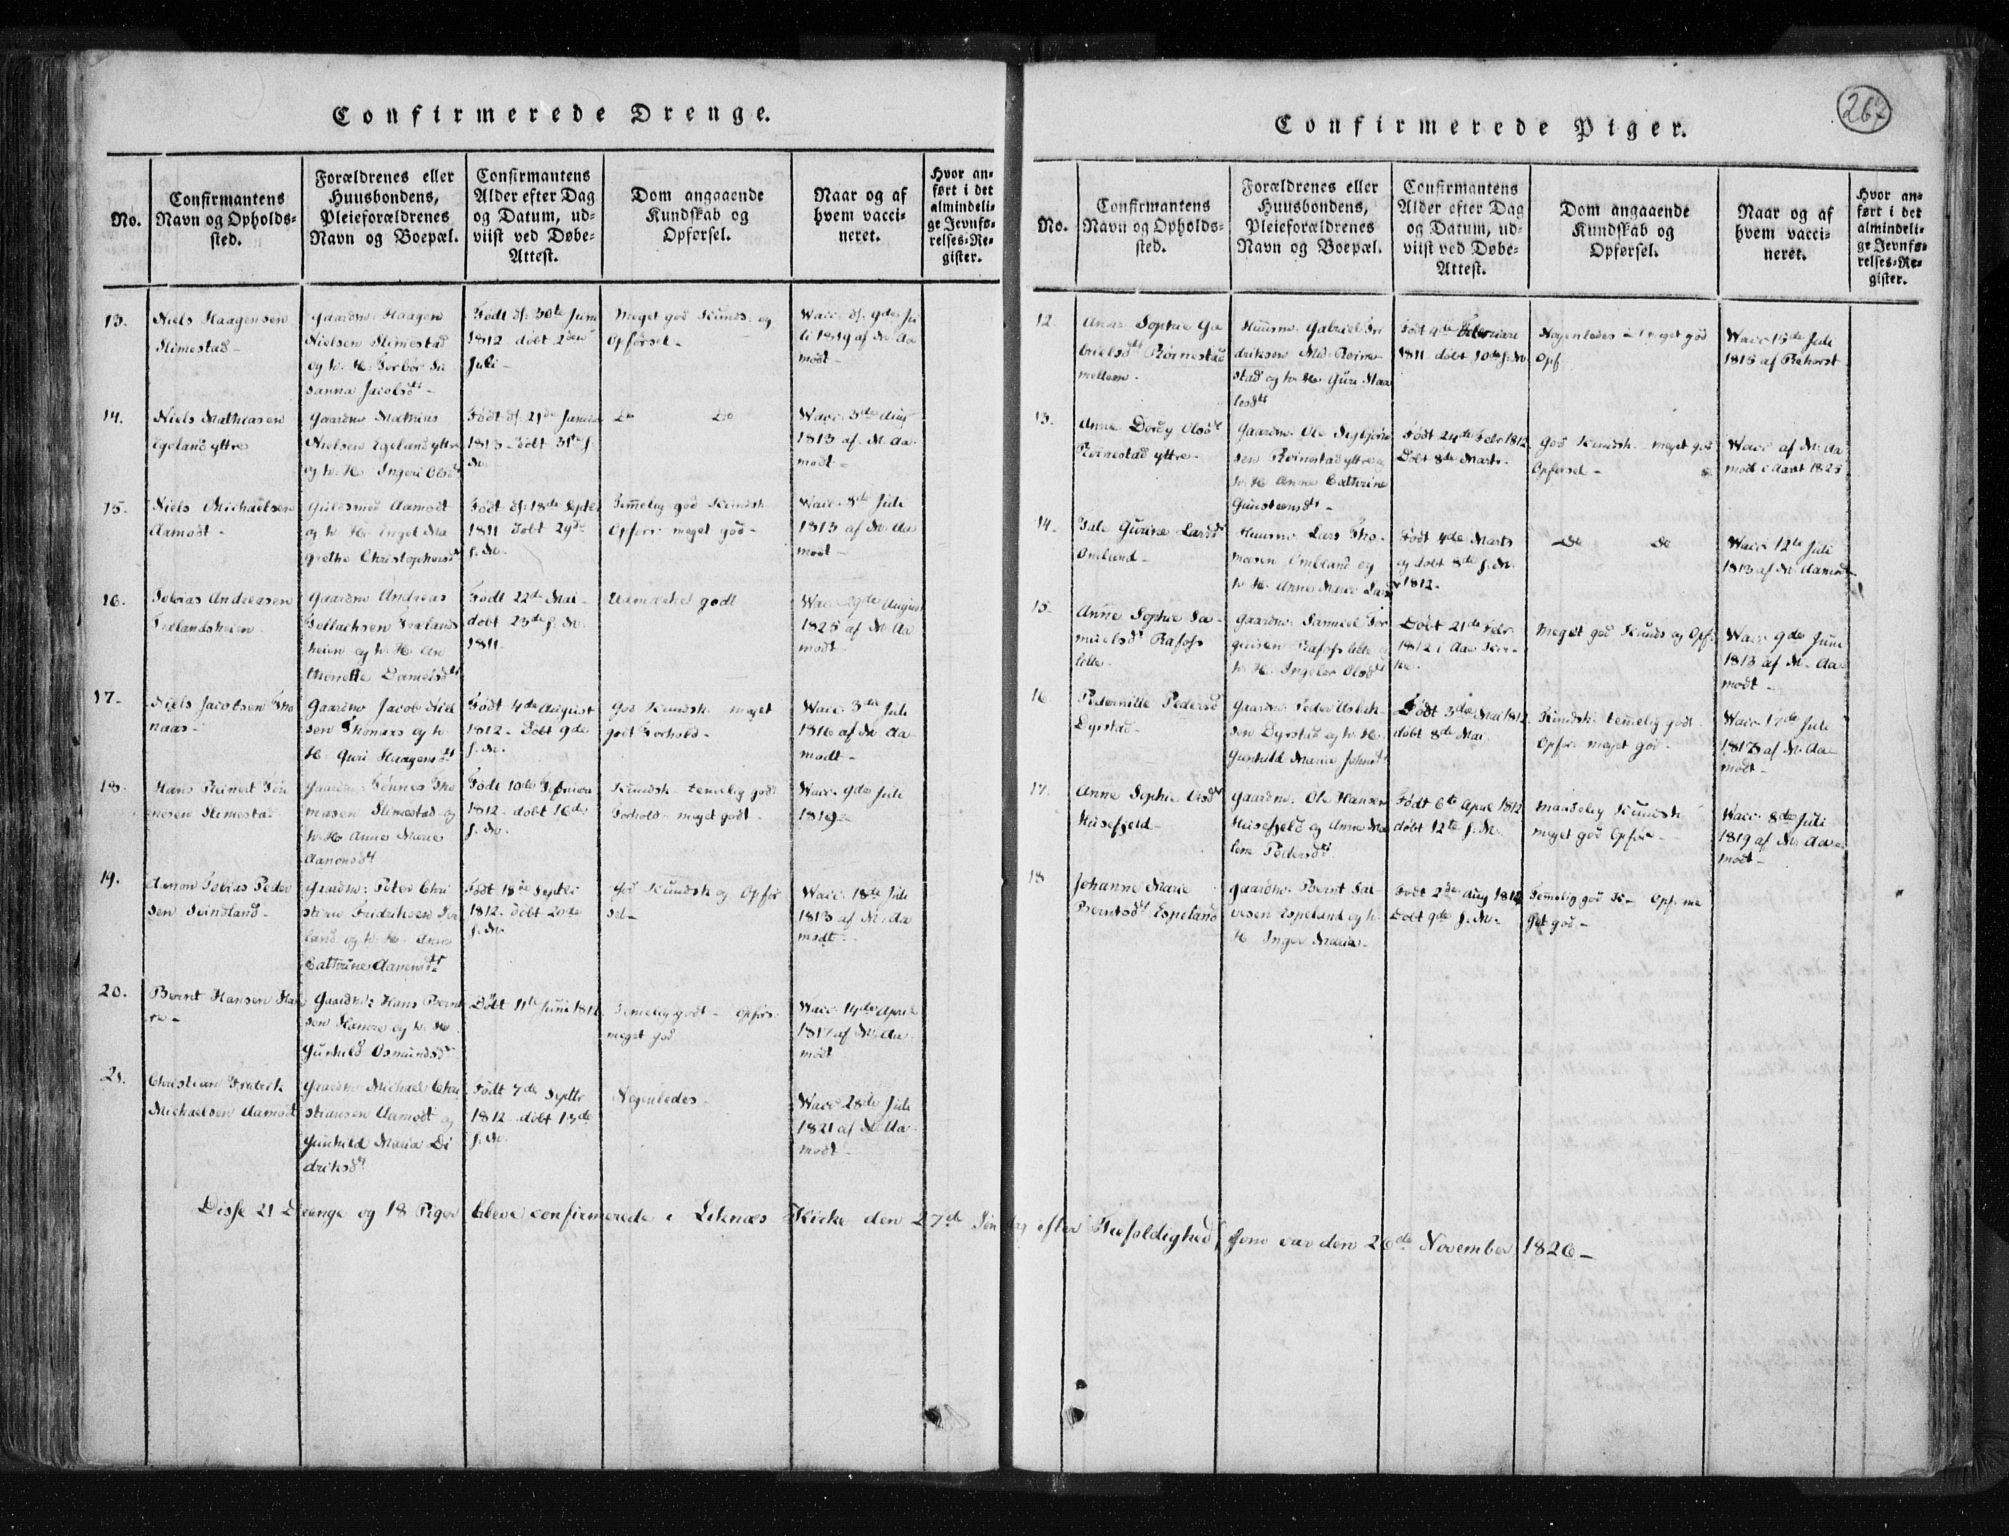 Confirmerede Drenge.
No.
Confirmantens
Navn og Opholds-
sted.
Forældrenes eller
Huusbondens,
Pleieforældrenes
Navn og Boepæl.
Confirmantens
Alder efter Dag
og Datum, ud-
viist ved Døbe-
Attest.
Dom angaaende
Kundskab og
Opførsel.
Naar og af
hvem vacci-
neret.
Hvor an-
ført i det
almindeli-
ge Jevnfø-
relses-Re-
gister.
13.
Niels Haagensen
Slimestad
Gaardm: Haagen
Nielsen Slimestad
og h. K. Torbor Su
sanna Jacobsdt
Født d: 30te Juni
1812 døbt 2den
Juli
Meget god Kunds. og
Opførsel
Wacc. d. 9de Ju
li 1819 af M. Aa
modt
14.
Niels Mathiasen
Egeland yttre
Gaardm Mathias
Nielsen Egeland yttre
og h. K. Ingeri Olsdt
Født d. 21de Januar
1813 døbt 31te s.
M.
Do Do
Wacc. 3de Aug
1813 af M. Aa
modt
15.
Niels Michaelsen
Aamodt
Guldsmed Aamodt
og h. K. Engel Ma
grethe Christophersdt
Født d. 18de Septbr
1811 døbt 29de
s. M.
Temelig god Kundsk
Opførs. meget god
Wacc. 8de Juli
1813 af M. Aa
modt
16.
Tobias Andreasen
Gaardm Andreas
Tollachsen
heien og h. K. An
thonette Danielsdt
Født 22de Mai
døbt 23de s. M.
1811
Udmærket godt
Wacc. 29de August
1825 af M. Aa
modt
17.
Niels Jacobsen Tho
naas
Gaardm Jacob Niel
sen Thonaas og h.
K. Guri Haagensdt
Født 4de August
1812 døbt 9de
s. M.
God Kundsk. meget
godt Forhold
Wacc. 3de Juli
1816 af M. Aa
modt
18.
Hans Reinert Tøn
nesen Slimestad
Gaardm Tønnes Tho
masen Slimestad og
h. K. Anne Marie
Aanonsdt
Født 10de Februar
1812 døbt 16de
s. M.
Kundsk. temelig godt
Forhold meget godt
Wacc. 9de Juli
1819
19.
Aanon Tobias Peder
sen Svindland
Gaardm: Peter Chri
stian Fridrichsen Svi
land og h. K. Anne
Cathrine Aanensdt
Født 18de Septbr
1812 døbt 20de
s. M.
God Kundsk og Opfør
sel
Wacc. 18de Juli
1813 af M. Aa
modt
20.
Bernt Hansen
Gaardm: Hans Bernt
sen og h. K.
Gunhild Osmundsdt
Døbt 11te Juni 1812
Temelig godt Opførs.
meget god
Wacc. 14de April
1817 af M. Aa
modt
21.
Christian Fridrik
Michaelsen Aamodt
Gaardm Michael Chri
stiansen Aamodt og
Gunhild Maria Di
driksdt
Født 7de Septbr
1812 døbt 13de
s. M.
Nogenledes
Wacc. 28de Juli
1821 af M. Aa
modt
Confirmerede Piger.
267
No.
Confirmantens
Navn og Opholds-
sted.
Forældrenes eller
Huusbondens,
Pleieforældrenes
Navn og Boepæl.
Confirmantens
Alder efter Dag
og Datum, ud-
viist ved Døbe-
Attest.
Dom angaaende
Kundskab og
Opførsel.
Naar og af
hvem vacci-
neret.
Hvor an-
ført i det
almindeli-
ge Jevnfø-
relses-Re-
gister.
12.
Anne Sophie Ga
brielsdt Røinestad
mellem
Huusm. Gabriel Fri
driksen Mel. Røine
stad og h. K. Guri
Født 4de Februar
1811 døbt 10de s. M.
Nogenledes meget god
Opf.
Wacc 15de Juli
1815 af
13.
Anne Dordy Olsdt
Røinestad yttre
Gaardm. Ole Sigbjørn
sen Røinestad yttre og
h. K. Anne Cathrine
Gunsteensdt
Født 24de Febr 1812
Døbt 8de Marts
God Kundsk. meget god
Opførsel
Wacc af M. Aa
modt i Aaret 1825
14.
Tale Gurine Larsdt
Omland
Huusm. Lars Tho
masen Omland og
h. K. Anne Marie Larsdt
Født 4de Marts
og døbt 8de s. M.
1812
Do Do
Wacc 12te Juli
1813 af M. Aamodt
15.
Anne Sophie Sa
muelsdt Rafoss
lille
Gaardm. Samuel Tor
gersen Rafoss lille og
h. K. Ingebor Olsdt
Døbt 21de Febr
1812 i Aae Kir
ke
Meget god Kunds og Opf.
Wacc. 9de Juni
1813 af M. Aa
modt
16
Pedernille Pedersd
Dyrstad
Gaardm. Peder
sen Dyrstad og h. K.
Gunhild Maria Johnsdt
Født 3de Mai 1812
døbt 8de Mai
Kundsk. temelig godt
Opfør. meget god
Wacc. 17de Juli
1817 af M. Aa
modt
17.
Anne Sophie Olsdt
Husefjeld
Gaardm. Ole Hansen
Husefjeld og Anne Ma
lene Pedersdt
Født 6te April 1812
døbt 12te s. M.
Maadelig Kundsk.
meget god Opfør
Wacc. 8de Juli
1819 af M. Aa
modt
18
Johanne Marie
Berntsdt Espeland
Gaardm. Bernt Sal
vesen Espeland og h.
K. Inger Maria
Født 2de Aug 1812
Døbt 9de s. M.
Temelig god K. Opf. me
get god
Disse 21 Drenge og 18 Piger bleve confirmerede i Liknæs Kirke den 27de Søndag efter Trefoldighed, som var den 26de November 1826